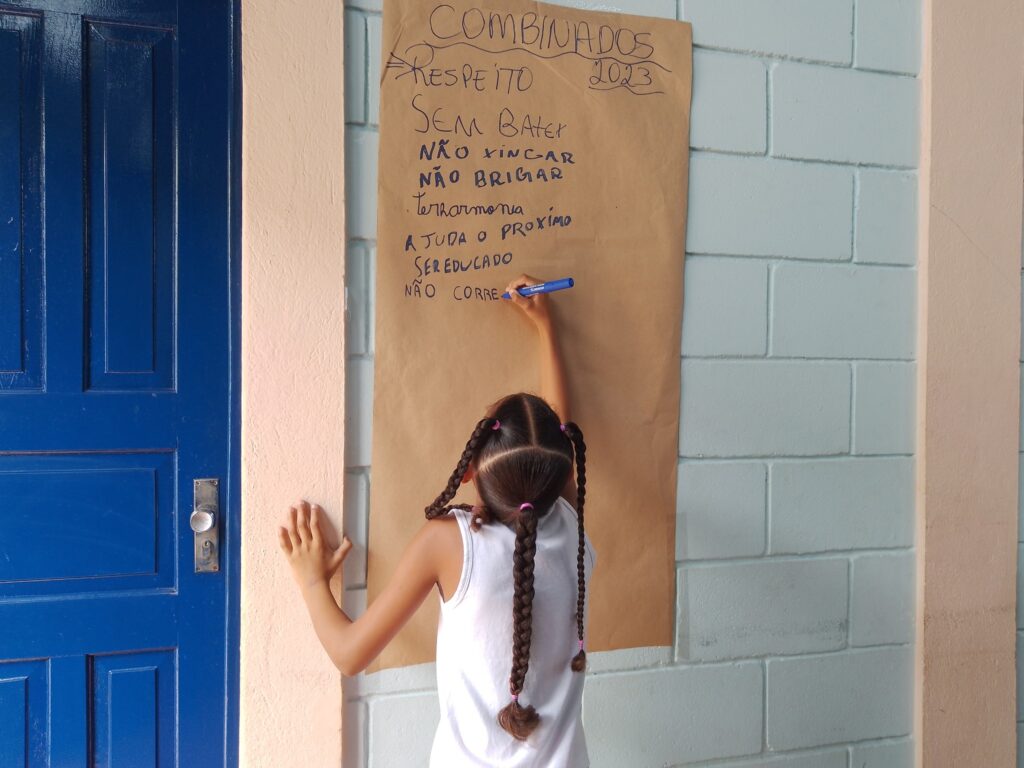 COMBINADOS
2023
RESPEITO
SEM BATER
NÃO XINGAR
NÃO BRIGAR
TERHARMONIA
AJUDA O PROXIMO
SEREDUCADO
NÃO CORRE